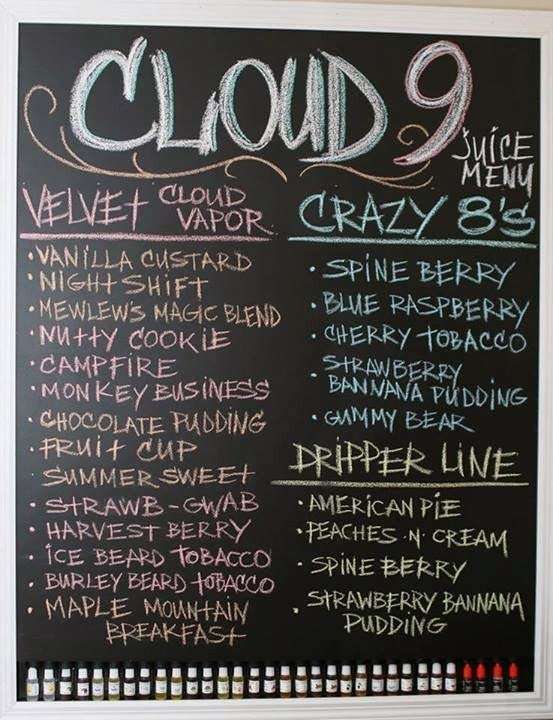 CLOUD 9
JUICE
MENU
VELVET CLOUD
VAPOR
• VANILLA CUSTARD
• NIGHT SHIFT
• MEWLEW'S MAGIC BLEND
• NUTTY COOKIE
• CAMPFIRE
• MONKEY BUSINESS
• CHOCOLATE PUDDING
• FRUIT CUP
• SUMMER SWEET
• STRAWB-GWAB
• HARVEST BERRY
• ICE BEARD TOBACCO
• BURLEY BEARD TOBACCO
• MAPLE MOUNTAIN
BREAKFAST
CRAZY 8'S
• SPINE BERRY
• BLUE RASPBERRY
• CHERRY TOBACCO
• STRAWBERRY
BANNANA PUDDING
• GUMMY BEAR
DRIPPER LINE
• AMERICAN PIE
• PEACHES N' CREAM
• SPINE BERRY
• STRAWBERRY BANNANA
PUDDING